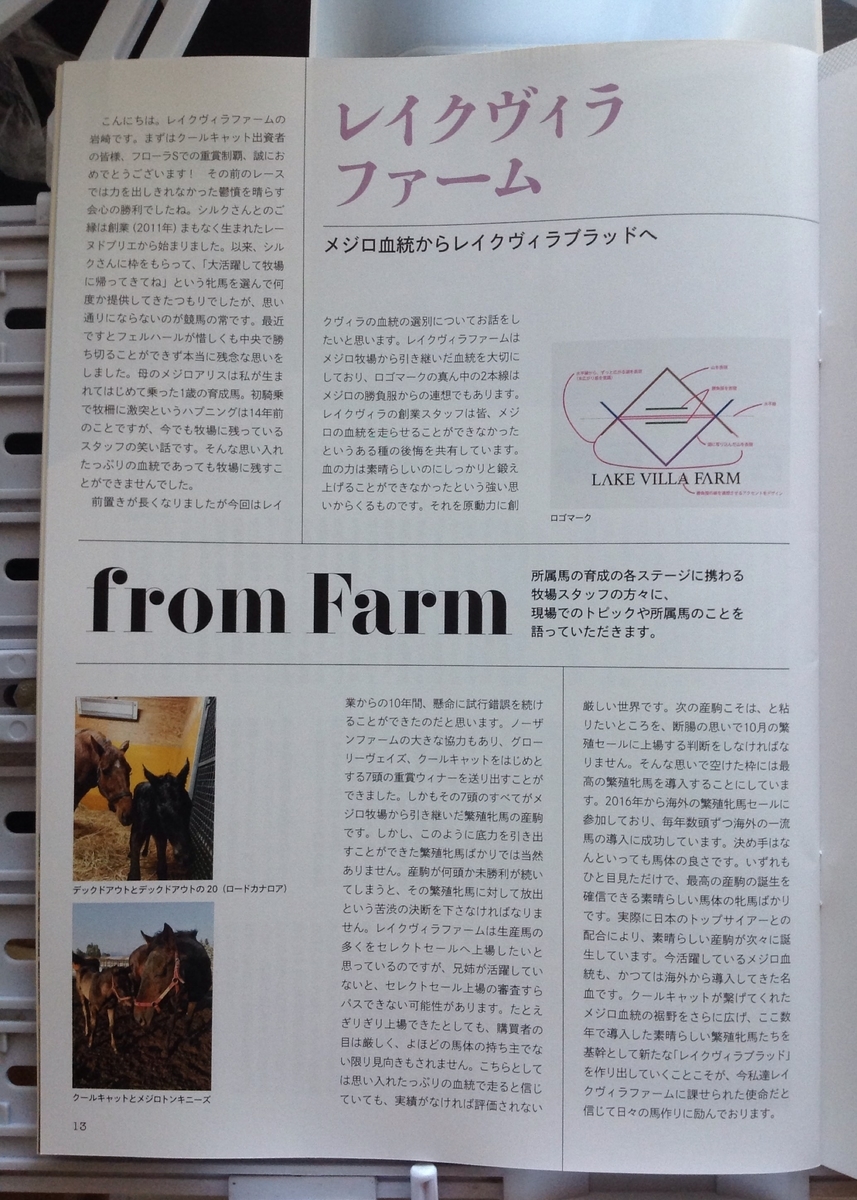 レイクヴィラ
ファーム
メジロ血統からレイクヴィラブラッドへ
こんにちは。レイクヴィラファームの
岩崎です。まずはクールキャット出資者
の皆様、フローラSでの重賞制覇、誠にお
めでとうございます！ その前のレース
では力を出しきれなかった鬱憤を晴らす
会心の勝利でしたね。シルクさんとのご
縁は創業(2011年)まもなく生まれたレー
ヌドブリエから始まりました。以来、シル
クさんに枠をもらって、「大活躍して牧場
に帰ってきてね」という牝馬を選んで何
度か提供してきたつもりでしたが、思い
通りにならないのが競馬の常です。最近
ですとフェルハールが惜しくも中央で勝
ち切ることができず本当に残念な思いを
しました。母のメジロアリスは私が生ま
れてはじめて乗った1歳の育成馬。初騎乗
で牧柵に激突というハプニングは14年前
のことですが、今でも牧場に残っている
スタッフの笑い話です。そんな思い入れ
たっぷりの血統であっても牧場に残すこ
とができませんでした。
前置きが長くなりましたが今回はレイ
クヴィラの血統の選別についてお話をし
たいと思います。レイクヴィラファームは
メジロ牧場から引き継いだ血統を大切に
しており、ロゴマークの真ん中の2本線は
メジロの勝負服からの連想でもあります。
レイクヴィラの創業スタッフは皆、メジ
ロの血統を走らせることができなかった
というある種の後悔を共有しています。
血の力は素晴らしいのにしっかりと鍛え
上げることができなかったという強い思
いからくるものです。それを原動力に創
LAKE VILLA FARM
ロゴマーク
from Farm
所属馬の育成の各ステージに携わる
牧場スタッフの方々に、
現場でのトピックや所属馬のことを
語っていただきます。
デックドアウトとデックドアウトの20（ロードカナロア）
クールキャットとメジロトンキニーズ
業からの10年間、懸命に試行錯誤を続け
ることができたのだと思います。ノーザ
ンファームの大きな協力もあり、グロー
リーヴェイズ、クールキャットをはじめと
する7頭の重賞ウィナーを送り出すことが
できました。しかもその7頭のすべてがメ
ジロ牧場から引き継いだ繁殖牝馬の産駒
です。しかし、このように底力を引き出
すことができた繁殖牝馬ばかりでは当然
ありません。産駒が何頭か未勝利が続い
てしまうと、その繁殖牝馬に対して放出
という苦渋の決断を下さなければなりま
せん。レイクヴィラファームは生産馬の
多くをセレクトセールへ上場したいと
思っているのですが、兄姉が活躍してい
ないと、セレクトセール上場の審査すら
パスできない可能性があります。たとえ
ぎりぎり上場できたとしても、購買者の
目は厳しく、よほどの馬体の持ち主でな
い限り見向きもされません。こちらとして
は思い入れたっぷりの血統で走ると信じ
ていても、実績がなければ評価されない
厳しい世界です。次の産駒こそは、と粘
りたいところを、断腸の思いで10月の繁
殖セールに上場する判断をしなければな
りません。そんな思いで空けた枠には最
高の繁殖牝馬を導入することにしていま
す。2016年から海外の繁殖牝馬セールに
参加しており、毎年数頭ずつ海外の一流
馬の導入に成功しています。決め手はな
んといっても馬体の良さです。いずれも
ひと目見ただけで、最高の産駒の誕生を
確信できる素晴らしい馬体の牝馬ばかり
です。実際に日本のトップサイアーとの
配合により、素晴らしい産駒が次々に誕
生しています。今活躍しているメジロ血
統も、かつては海外から導入してきた名
血です。クールキャットが繋げてくれた
メジロ血統の裾野をさらに広げ、ここ数
年で導入した素晴らしい繁殖牝馬たちを
基幹として新たな「レイクヴィラブラッド」
を作り出していくことこそが、今私達レイ
クヴィラファームに課せられた使命だと
信じて日々の馬作りに励んでおります。
13